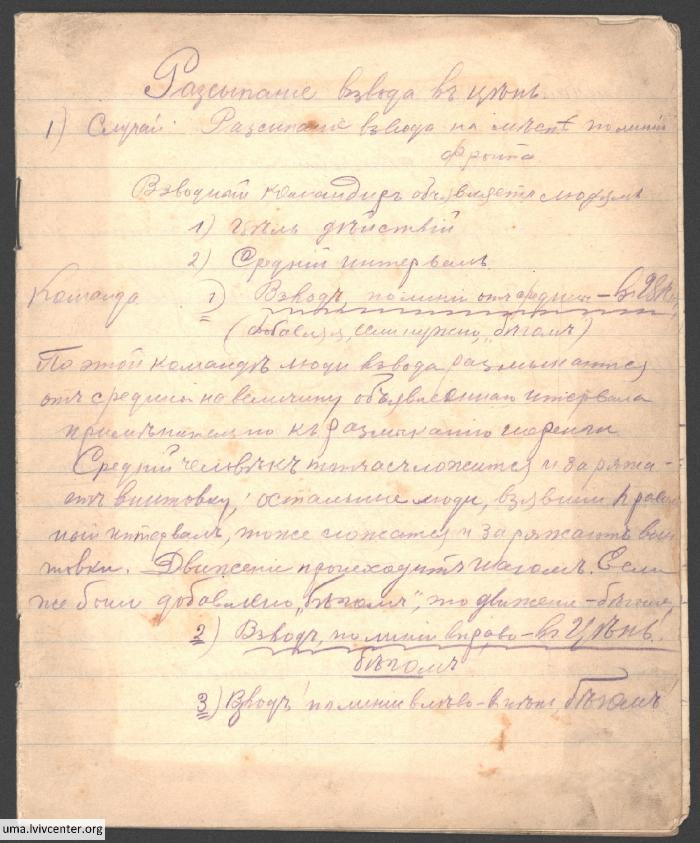 Разсыпание взвода въ цѣпь
1) Случай: Разсыпание взвода на мѣстѣ по линии
фронта
Взводный командиръ объявляетъ людямъ
1) Цѣль дѣйствий
2) Средний интервалъ
Команда 1) Взводъ, по линии отъ средины – въ Цѣпь
(добавляя, если нужно, „бѣгомъ")
По этой командѣ люди взвода, размыкаются
отъ средины на величину объявленнаго интервала
применительно къ размыканию шеренги.
Средний человѣкъ тотчасъ ложится и заряжа-
етъ винтовку, остальные люди, взявши
ный интервалъ, тоже ложатся и заряжаютъ вин
товки. Движение происходитъ шагомъ. Если
же было добавлено „бѣгомъ", то движение – бѣгомъ
2) Взводъ, по линии вправо – въ Цѣпь!
бѣгомъ
3) Взводъ! по линии влево – в цѣпь бѣгомъ!
uma.lvivcenter.org